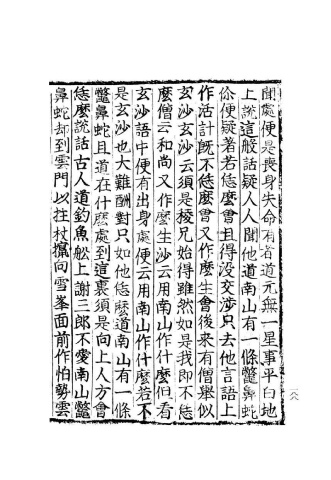 聞處便是喪身失命有者道元無一星事平白地
上說這般話疑人人聞他道南山有一條鼈鼻蛇
你便疑著若恁麼會且得沒交涉只去他言語上
作活計既不恁麼會又作麼生會後來有僧舉似
玄沙玄沙云須是稜兄始得雖然如是我即不恁
麼僧云和尚又作麼生沙云用南山作什麼但看
玄沙語中便有出身處便云用南山作什麼若不
是玄沙也大難酬對只如他恁麼道南山有一條
鼈鼻蛇且道在什麼處到這裏須是向上人方會
恁麼說話古人道釣魚舡上謝三郎不愛南山鼈
鼻蛇却到雲門以拄杖攛向雪峯面前作怕勢雲